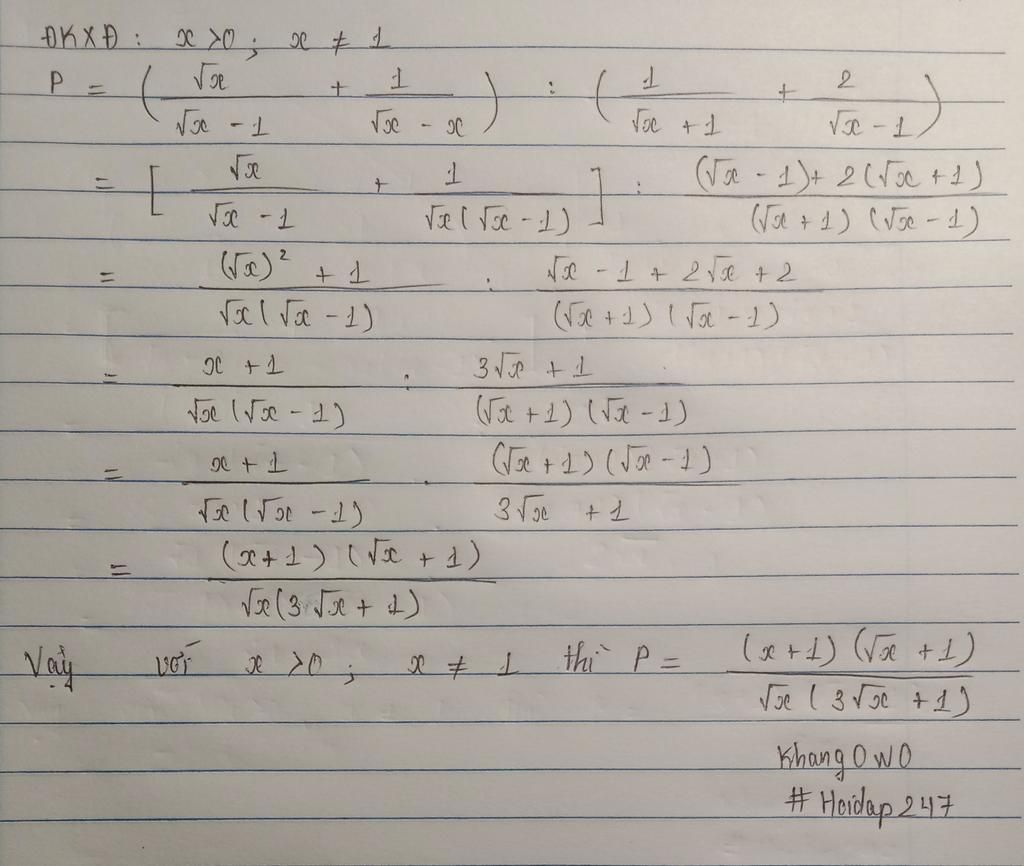 ĐKXĐ: x >0 ; x ≠ 1
P = (√x/(√x - 1) + 1/(√x - x)) : (1/(√x + 1) + 2/(√x - 1))
= [√x/(√x - 1) + 1/(√x(√x - 1))] : ((√x - 1)+ 2(√x + 1))/((√x + 1)(√x - 1))
= ((√x)² + 1)/(√x(√x - 1)) : (√x - 1 + 2√x + 2)/((√x + 1)(√x - 1))
= (x + 1)/(√x(√x - 1)) : (3√x + 1)/((√x + 1)(√x - 1))
= (x + 1)/(√x(√x - 1)) . ((√x + 1)(√x - 1))/(3√x + 1)
= ((x + 1)(√x + 1))/(√x(3√x + 1))
Vậy với x >0 ; x ≠ 1 thì P = ((x + 1)(√x + 1))/(√x(3√x + 1))
KhangOwO
#Hoidap247